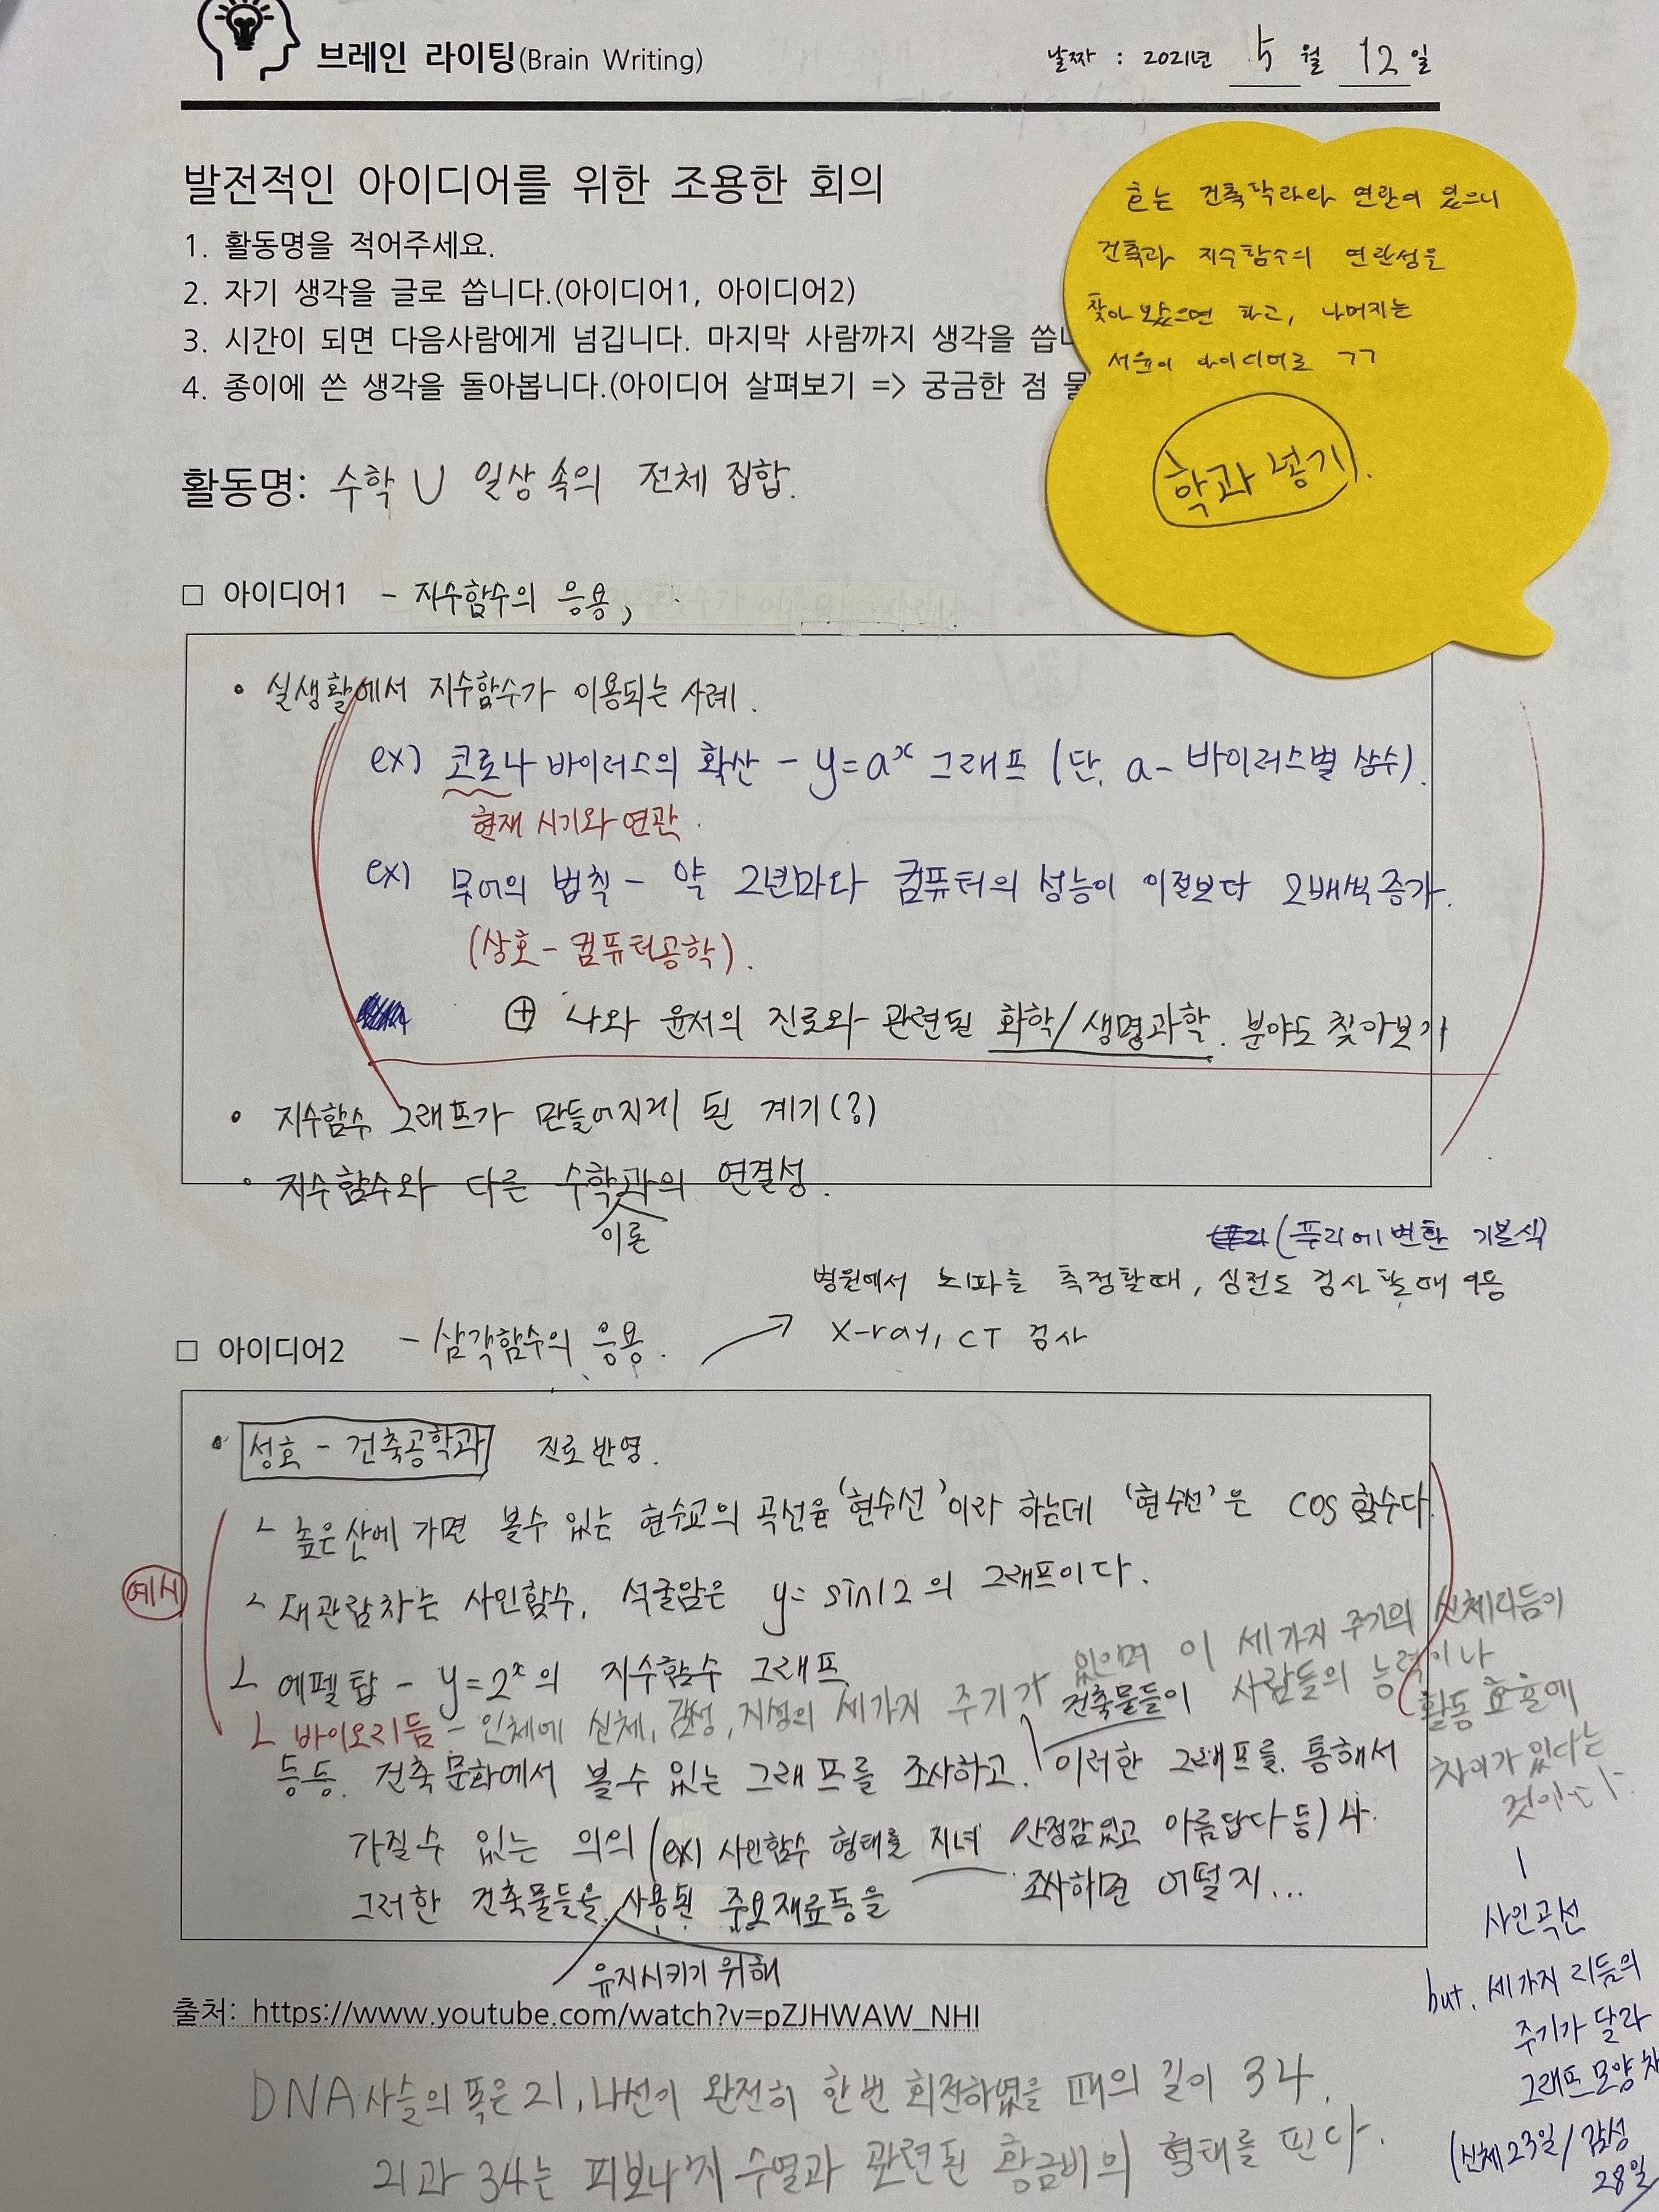 브레인 라이팅(Brain Writing)
날짜 : 2021년 5월 12일
발전적인 아이디어를 위한 조용한 회의
1. 활동명을 적어주세요.
2. 자기 생각을 글로 씁니다.(아이디어1, 아이디어2)
3. 시간이 되면 다음사람에게 넘깁니다. 마지막 사람까지 생각을 씁니
4. 종이에 쓴 생각을 돌아봅니다.(아이디어 살펴보기 => 궁금한 점 물
건축학과와 연관이 있으니
건축과 지수함수의 연관성을
찾아보았으면 하고, 나머지는
서윤이 아이디어로 ㄱㄱ
학과 넣기.
활동명: 수학 U 일상 속의 전체 집합.
□ 아이디어1 - 지수함수의 응용,
• 실생활에서 지수함수가 이용되는 사례.
ex) 코로나 바이러스의 확산 - y=aˣ 그래프 (단, a- 바이러스별 상수).
현재 시기와 연관.
ex) 무어의 법칙 - 약 2년마다 컴퓨터의 성능이 이전보다 2배씩 증가.
(상호 - 컴퓨터공학).
⊕ 나와 윤서의 진로와 관련된 화학/생명과학. 분야도 찾아보기
• 지수함수 그래프가 만들어지게 된 계기(?)
• 지수함수와 다른 수학과의 연결성.
이론
(푸리에 변환 기본식)
병원에서 뇌파를 측정할때, 심전도 검사 할때 이용
X-ray, CT 검사
□ 아이디어2 - 삼각함수의 응용.
• 성호 - 건축공학과 진로 반영.
ㄴ 높은산에 가면 볼수 있는 현수교의 곡선을 '현수선'이라 하는데 '현수선'은 cos 함수다.
예시
ㄴ 대관람차는 사인함수, 석굴암은 y= sin12의 그래프이다.
ㄴ 에펠탑 - y=2ˣ의 지수함수 그래프
ㄴ 바이오리듬 - 인체에 신체, 감성, 지성의 세가지 주기가 있으며 이 세가지 주기의 신체리듬이
사람들의 능력이나
활동 효율에
차이가 있다는
것이다.
건축물들이
등등. 건축 문화에서 볼수 있는 그래프를 조사하고. 이러한 그래프를 통해서
가질수 있는 의의 (ex) 사인함수 형태를 지녀 안정감있고 아름답다 등)나.
그러한 건축물들을 사용된 주요재료등을 조사하면 어떨지...
유지시키기 위해
사인곡선
but. 세가지 리듬의
주기가 달라
그래프 모양 차
(신체23일/감성
28일/
출처: https://www.youtube.com/watch?v=pZJHWAW_NHI
DNA 사슬의 폭은 21, 나선이 완전히 한번 회전하였을 때의 길이 34.
21과 34는 피보나치 수열과 관련된 황금비의 형태를 띤다.